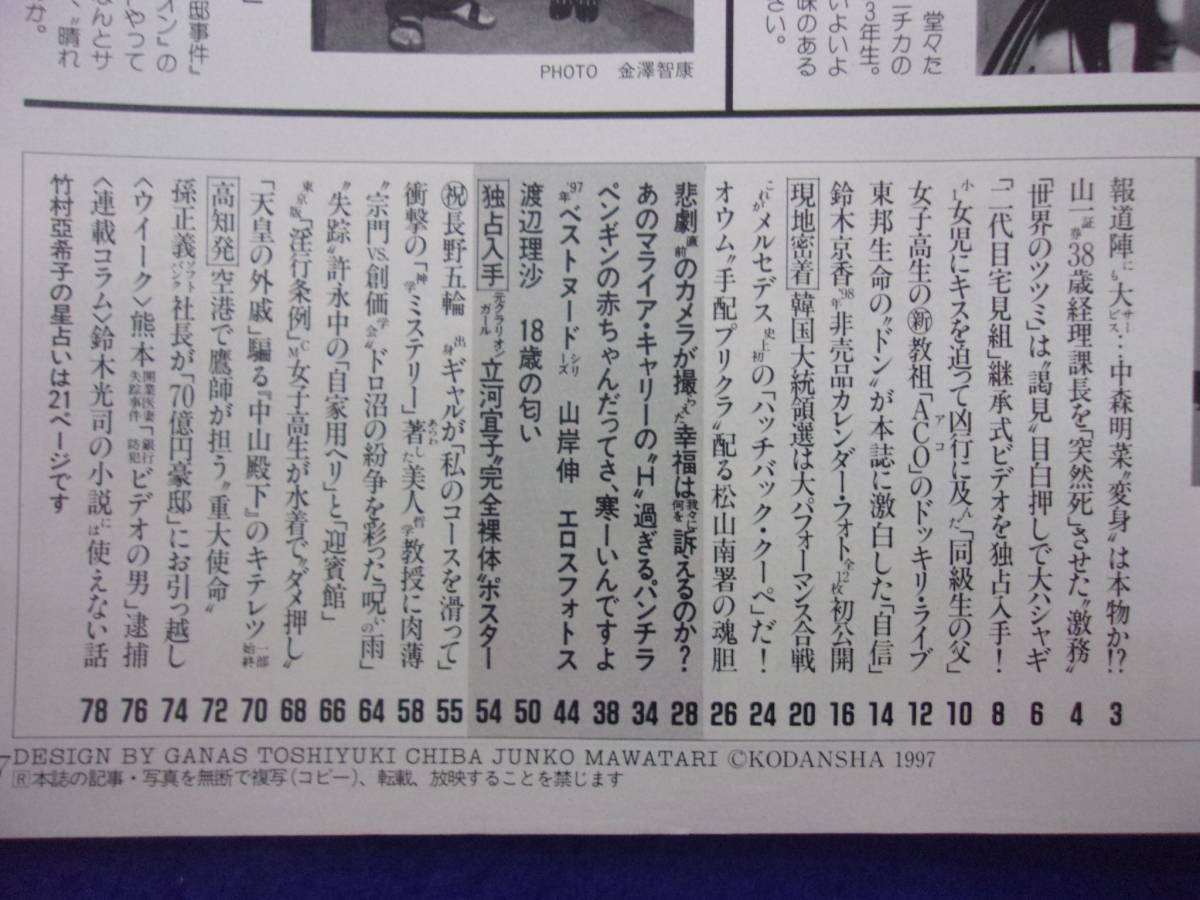 邸事件』
オン』の
やって
んとサ
か。〝晴れ
PHOTO 金澤智康
堂々た
ニチカの
3年生。
いよいよ
味のある
さい。
報道陣にも大サービス…中森明菜〝変身〟は本物か!? 3
山一証券38歳経理課長を「突然死」させた〝激務〟 4
「世界のツツミ」は〝謁見〟目白押しで大ハシャギ 6
「二代目宅見組」継承式ビデオを独占入手! 8
小1女児にキスを迫って凶行に及んだ「同級生の父」 10
女子高生の㊟新教祖「ACO」アコのドッキリ・ライブ 12
東邦生命の〝ドン〟が本誌に激白した「自信」 14
鈴木京香'98年非売品カレンダー・フォト全12枚初公開 16
現地密着 韓国大統領選は大パフォーマンス合戦 20
これがメルセデス史上初の「ハッチバック・クーペ」だ! 24
オウム〝手配プリクラ〟配る松山南署の魂胆 26
悲劇直前のカメラが撮らえた幸福は我々に何を訴えるのか? 28
あのマライア・キャリーの〝H〟過ぎるパンチラ 34
ペンギンの赤ちゃんだってさ、寒ーいんですよ 38
'97年ベストヌードシリーズ 山岸伸 エロスフォトス 44
渡辺理沙 18歳の匂い 50
独占入手 元クラリオンガール立河宜子〝完全裸体〟ポスター 54
㊗長野五輪 出身ギャルが「私のコースを滑って」 55
衝撃の「神学ミステリー」著した美人哲学教授に肉薄 58
〝宗門〟VS.創価学会〝ドロ沼の紛争を彩った「呪いの雨」 64
〝失踪〟許永中の「自家用ヘリ」と「迎賓館」 66
東京版「淫行条例」CM女子高生が水着で〝ダメ押し〟 68
「天皇の外戚」騙る『中山殿下』のキテレツ一部始終 70
高知発 空港で鷹師が担う〝重大使命〟 72
孫正義ソフトバンク社長が「70億円豪邸」にお引っ越し 74
〈ウイーク〉熊本開業医妻失踪事件「銀行防犯ビデオの男」逮捕 76
〈連載コラム〉鈴木光司の小説には使えない話 78
竹村亞希子の星占いは21ページです
7 DESIGN BY GANAS TOSHIYUKI CHIBA JUNKO MAWATARI ©KODANSHA 1997
Ⓡ本誌の記事・写真を無断で複写(コピー)、転載、放映することを禁じます